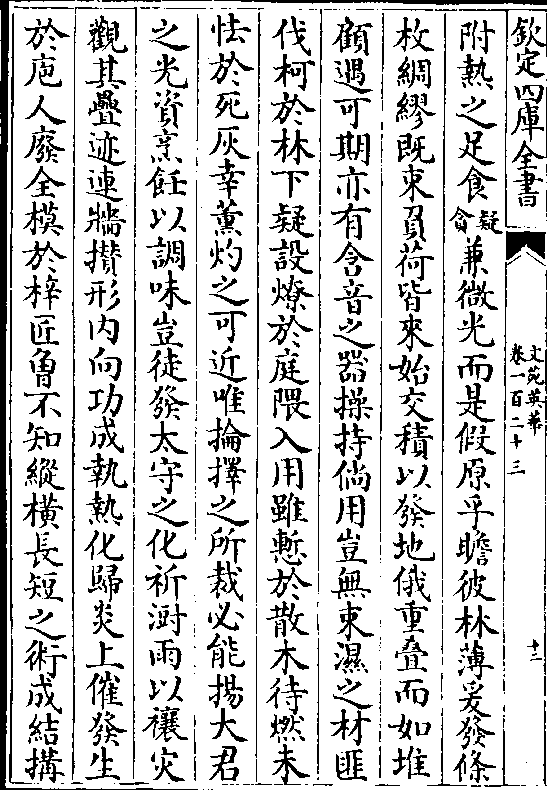 欽定四庫全書
文苑英華
卷一百二十三
十二
附熱之足食疑貪兼微光而是假原乎瞻彼林薄爰發條
枚綢繆既束負荷皆來始交積以發地俄重叠而如堆
顧遇可期亦有含音之器操持倘用豈無束濕之材匪
伐柯於林下疑設燎於庭隈入用雖慙於散木待燃未
怯於死灰幸薰灼之可近唯掄擇之所裁必能揚大君
之光資烹飪以調味豈徒發太守之化祈澍雨以禳灾
觀其疊迹連牆攢形内向功成執熱化歸炎上催發生
於庖人廢全模於梓匠曾不知縱横長短之術成結搆